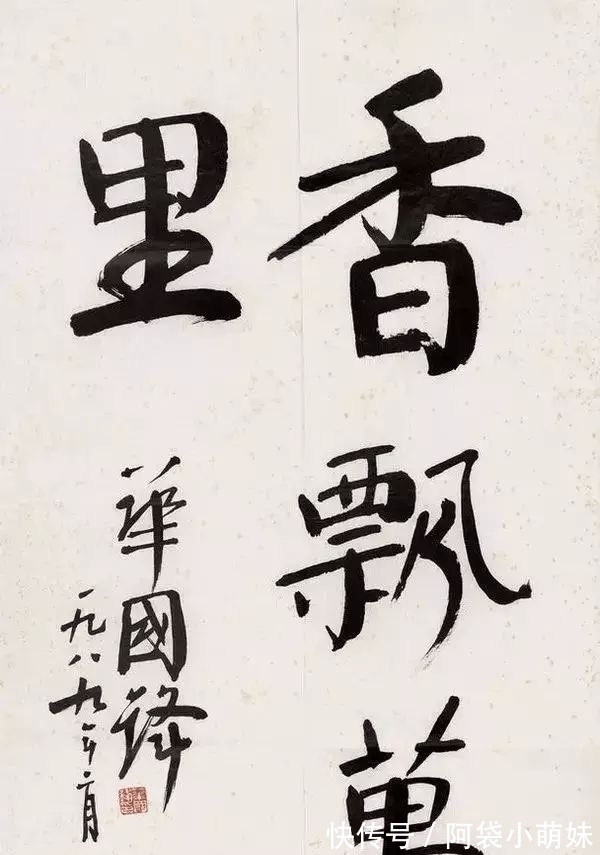 香飄萬
里
華國鋒
一九八九年二月
快传号/阿袋小萌妹